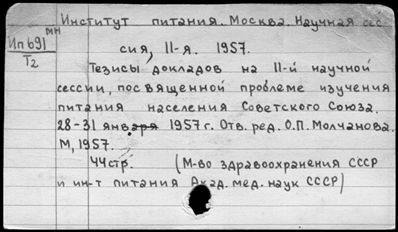 Институт питания. Москва. Научная сес-
мн
Ип691
Т2
сия, II-я. 1957.
Тезисы докладов на II-й научной
сессии, посвященной проблеме изучения
питания населения Советского Союза.
28-31 января 1957 г. Отв. ред. О.П. Молчанова.
М, 1957.
44стр. (М-во здравоохранения СССР
и ин-т питания Акад. мед. наук СССР)